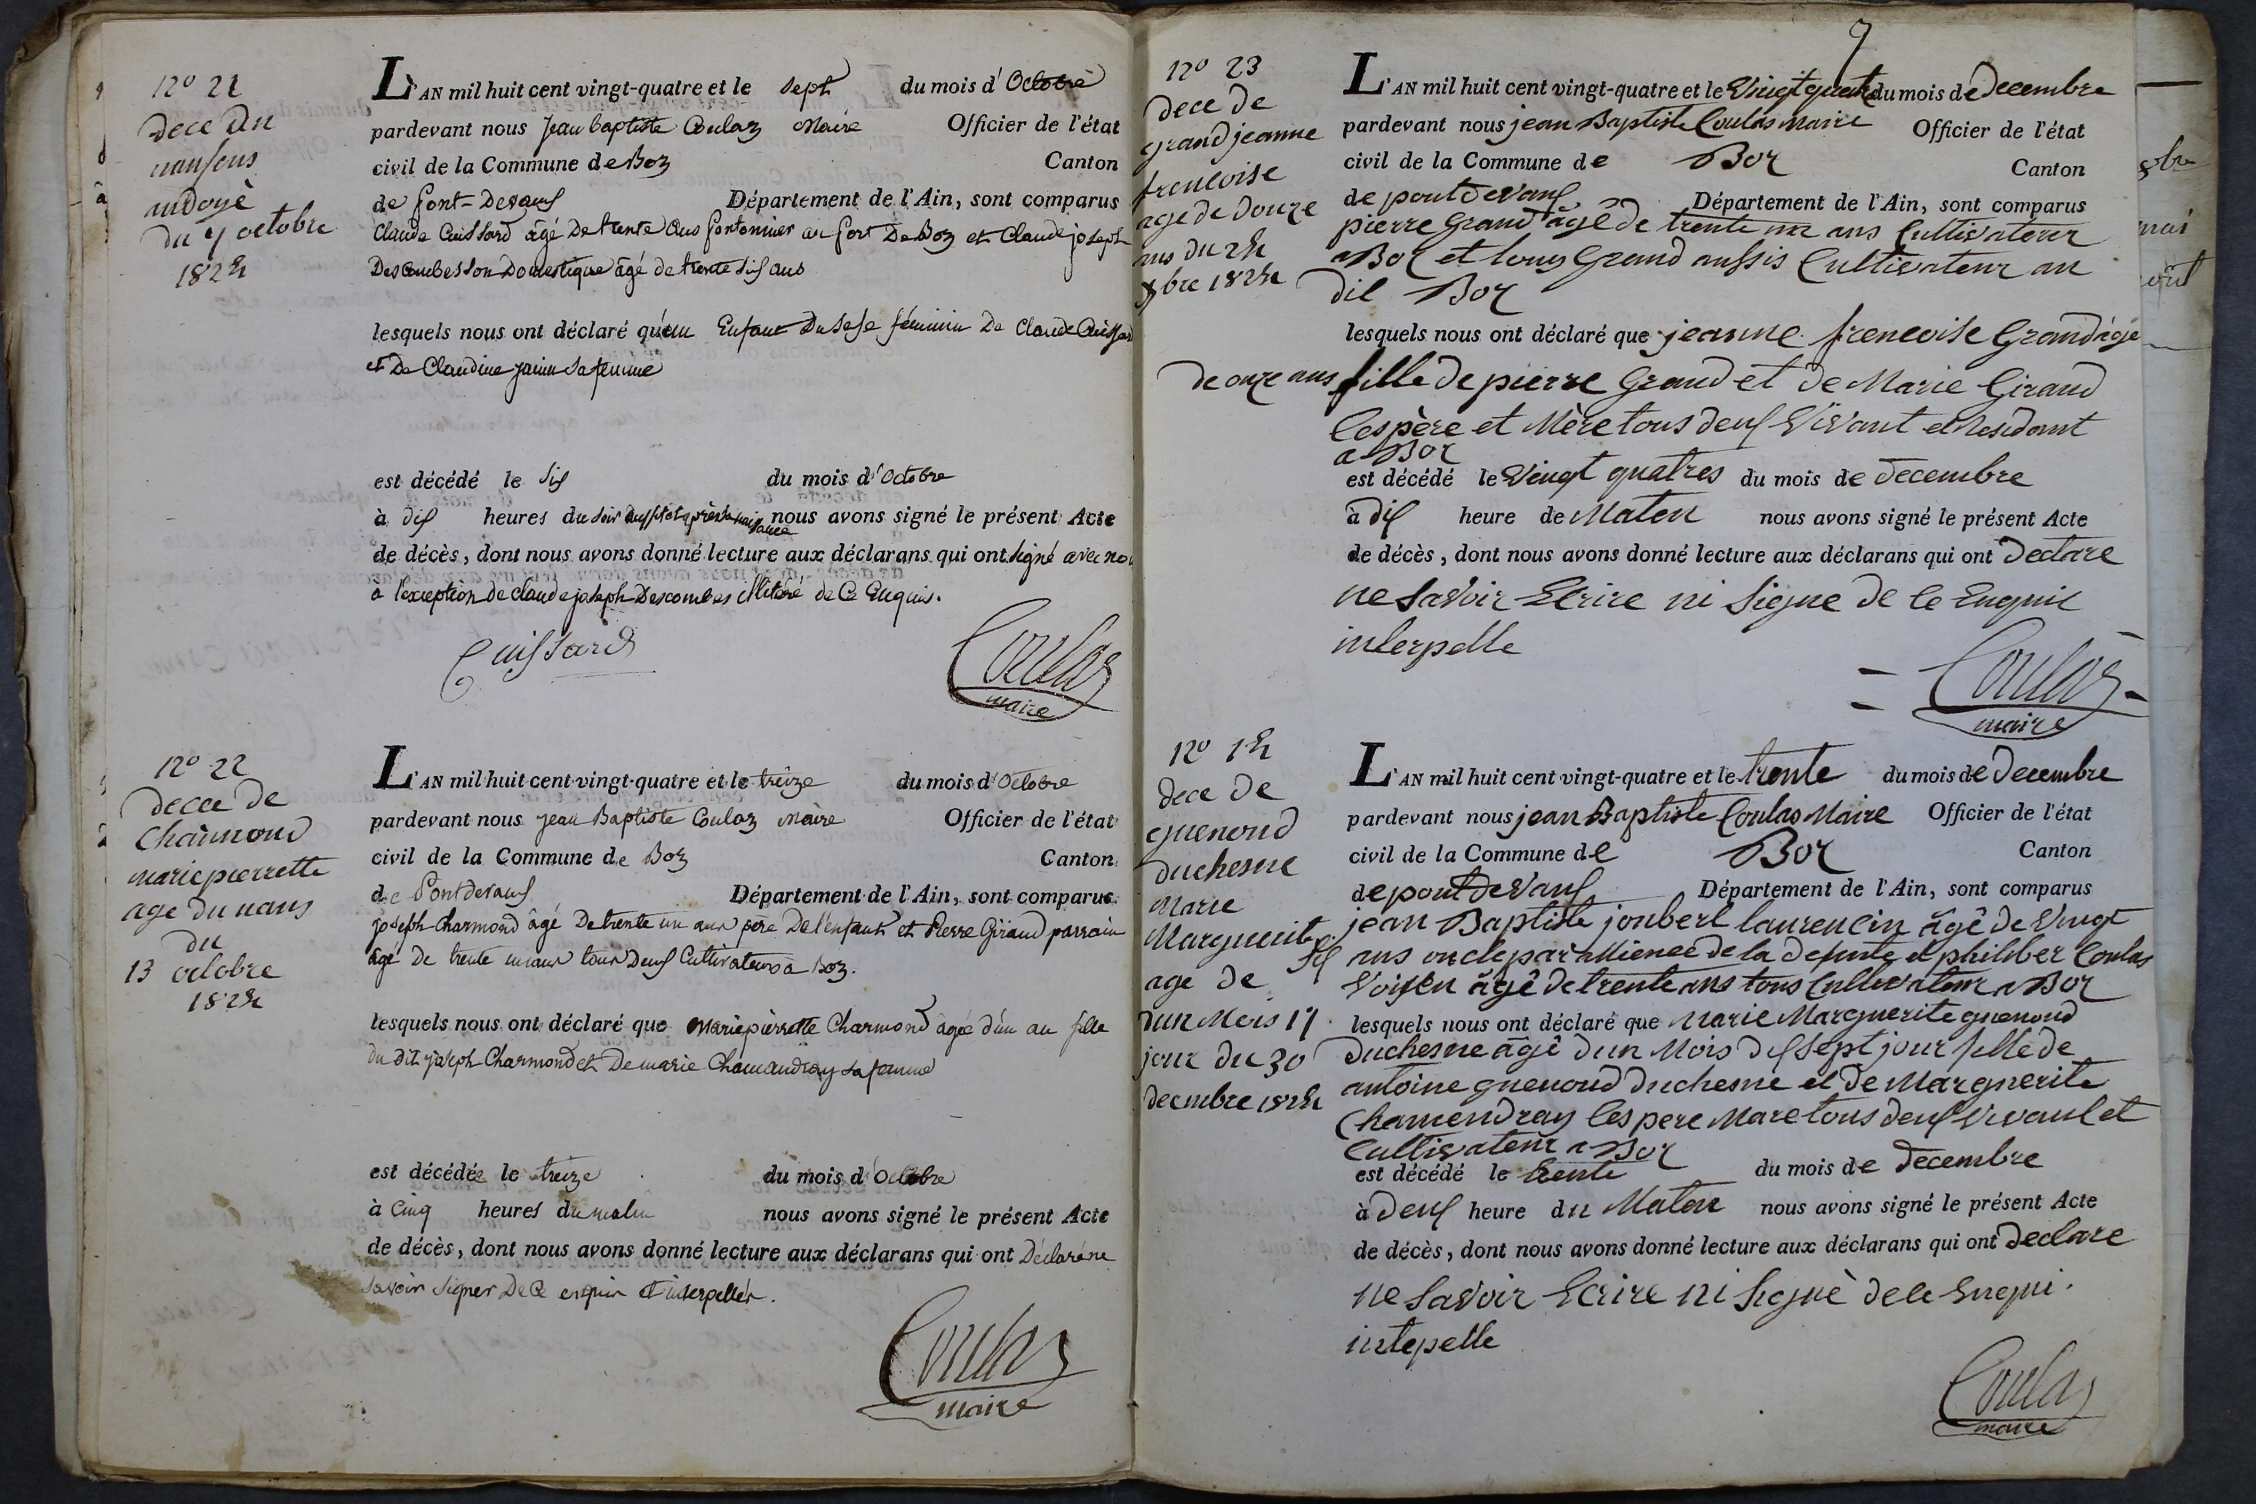 nº 21
dece dun
nansens
undoyé
du 7 octobre
1824
L'AN mil huit cent vingt-quatre et le sept du mois d'Octobre
pardevant nous Jean baptiste Coulaz Maire Officier de l'état
civil de la Commune de Boz Canton
de Pont-Devaux Département de l'Ain, sont comparus
Claude Cuissard âgé De trente ans fontonnier au fort De Boz et Claude joseph
Descombes son Domestique âgé de trente six ans
lesquels nous ont déclaré qu'un Enfant Du sexe féminin De Claude Cuissard
et De Claudine janin sa femme
est décédé le Six du mois d'Octobre
à dix heures du soir aussitot après sa naissance nous avons signé le présent Acte
de décès, dont nous avons donné lecture aux déclarans qui ont signé avec nous
a l'exception de claude joseph Descombes illitéré de Ce Enquis.
Cuissard
Coulaz
maire
nº 22
decce de
Charmond
marie pierrette
age du nans
du
13 octobre
1824
L'AN mil huit cent vingt-quatre et le treize du mois d'Octobre
pardevant nous jean Baptiste Coulaz Maire Officier de l'état
civil de la Commune de Boz Canton
de Pontdevaux Département de l'Ain, sont comparus
joseph Charmond âgé De trente un ans père De l'enfant et Pierre Giraud parrain
âgé De trente un ans tous Deux Cultivateurs a Boz.
lesquels nous ont déclaré que Marie pierrette Charmond âgée d'un an fille
du dit joseph Charmond et De marie Chamandray sa femme
est décédée le treize du mois d'Octobre
à Cinq heures du matin nous avons signé le présent Acte
de décès, dont nous avons donné lecture aux déclarans qui ont Déclaré ne
savoir signer De Ce enquis et interpellés.
Coulaz
maire
9
nº 23
dece de
grand jeanne
frencoise
age de Douze
ans du 24
xbre 1824
L'AN mil huit cent vingt-quatre et le Vingt quatre du mois de decembre
pardevant nous jean Baptiste Coulas Maire Officier de l'état
civil de la Commune de Boz Canton
de pont devaux Département de l'Ain, sont comparus
pierre Grand âgé de trente un ans Cultivateur
a Boz et louy Grand aussis Cultivateur au
dit Boz
lesquels nous ont déclaré que jeanne frencoise Grand âgé
de onze ans fille de pierre Grand et de Marie Giraud
les père et Mère tous deux Vivant et residant
a Boz
est décédé le Vingt quatres du mois de decembre
à dix heure de Maten nous avons signé le présent Acte
de décès, dont nous avons donné lecture aux déclarans qui ont declare
ne savoir Ecrire ni Signe de le Enquie
interpelle
Coulaz
maire
nº 24
dece de
guenond
duchesne
Marie
Marguerite
age de
dun Mois 17
jour du 30
decmbre 1824
L'AN mil huit cent vingt-quatre et le trente du mois de decembre
pardevant nous jean Baptiste Coulas Maire Officier de l'état
civil de la Commune de Boz Canton
de pont de Vaux Département de l'Ain, sont comparus
jean Baptiste joubert laurencin âgé de Vingt
ans oncle par allience de la defunte et philiber Coulas
Voisen âgé de trente ans tous Cultivateur a Boz
lesquels nous ont déclaré que Marie Marguerite guenoud
duchesne âgé dun Mois dix sept jour fille de
antoine guenoud duchesne et de Marguerite
Chamendray les pere Mare tous deux Vivant et
Cultivateur a Boz
est décédé le trente du mois de decembre
à deux heure du Maten nous avons signé le présent Acte
de décès, dont nous avons donné lecture aux déclarans qui ont declare
ne savoir Ecrire ni signè de le Enqui.
intepelle
Coulaz
maire